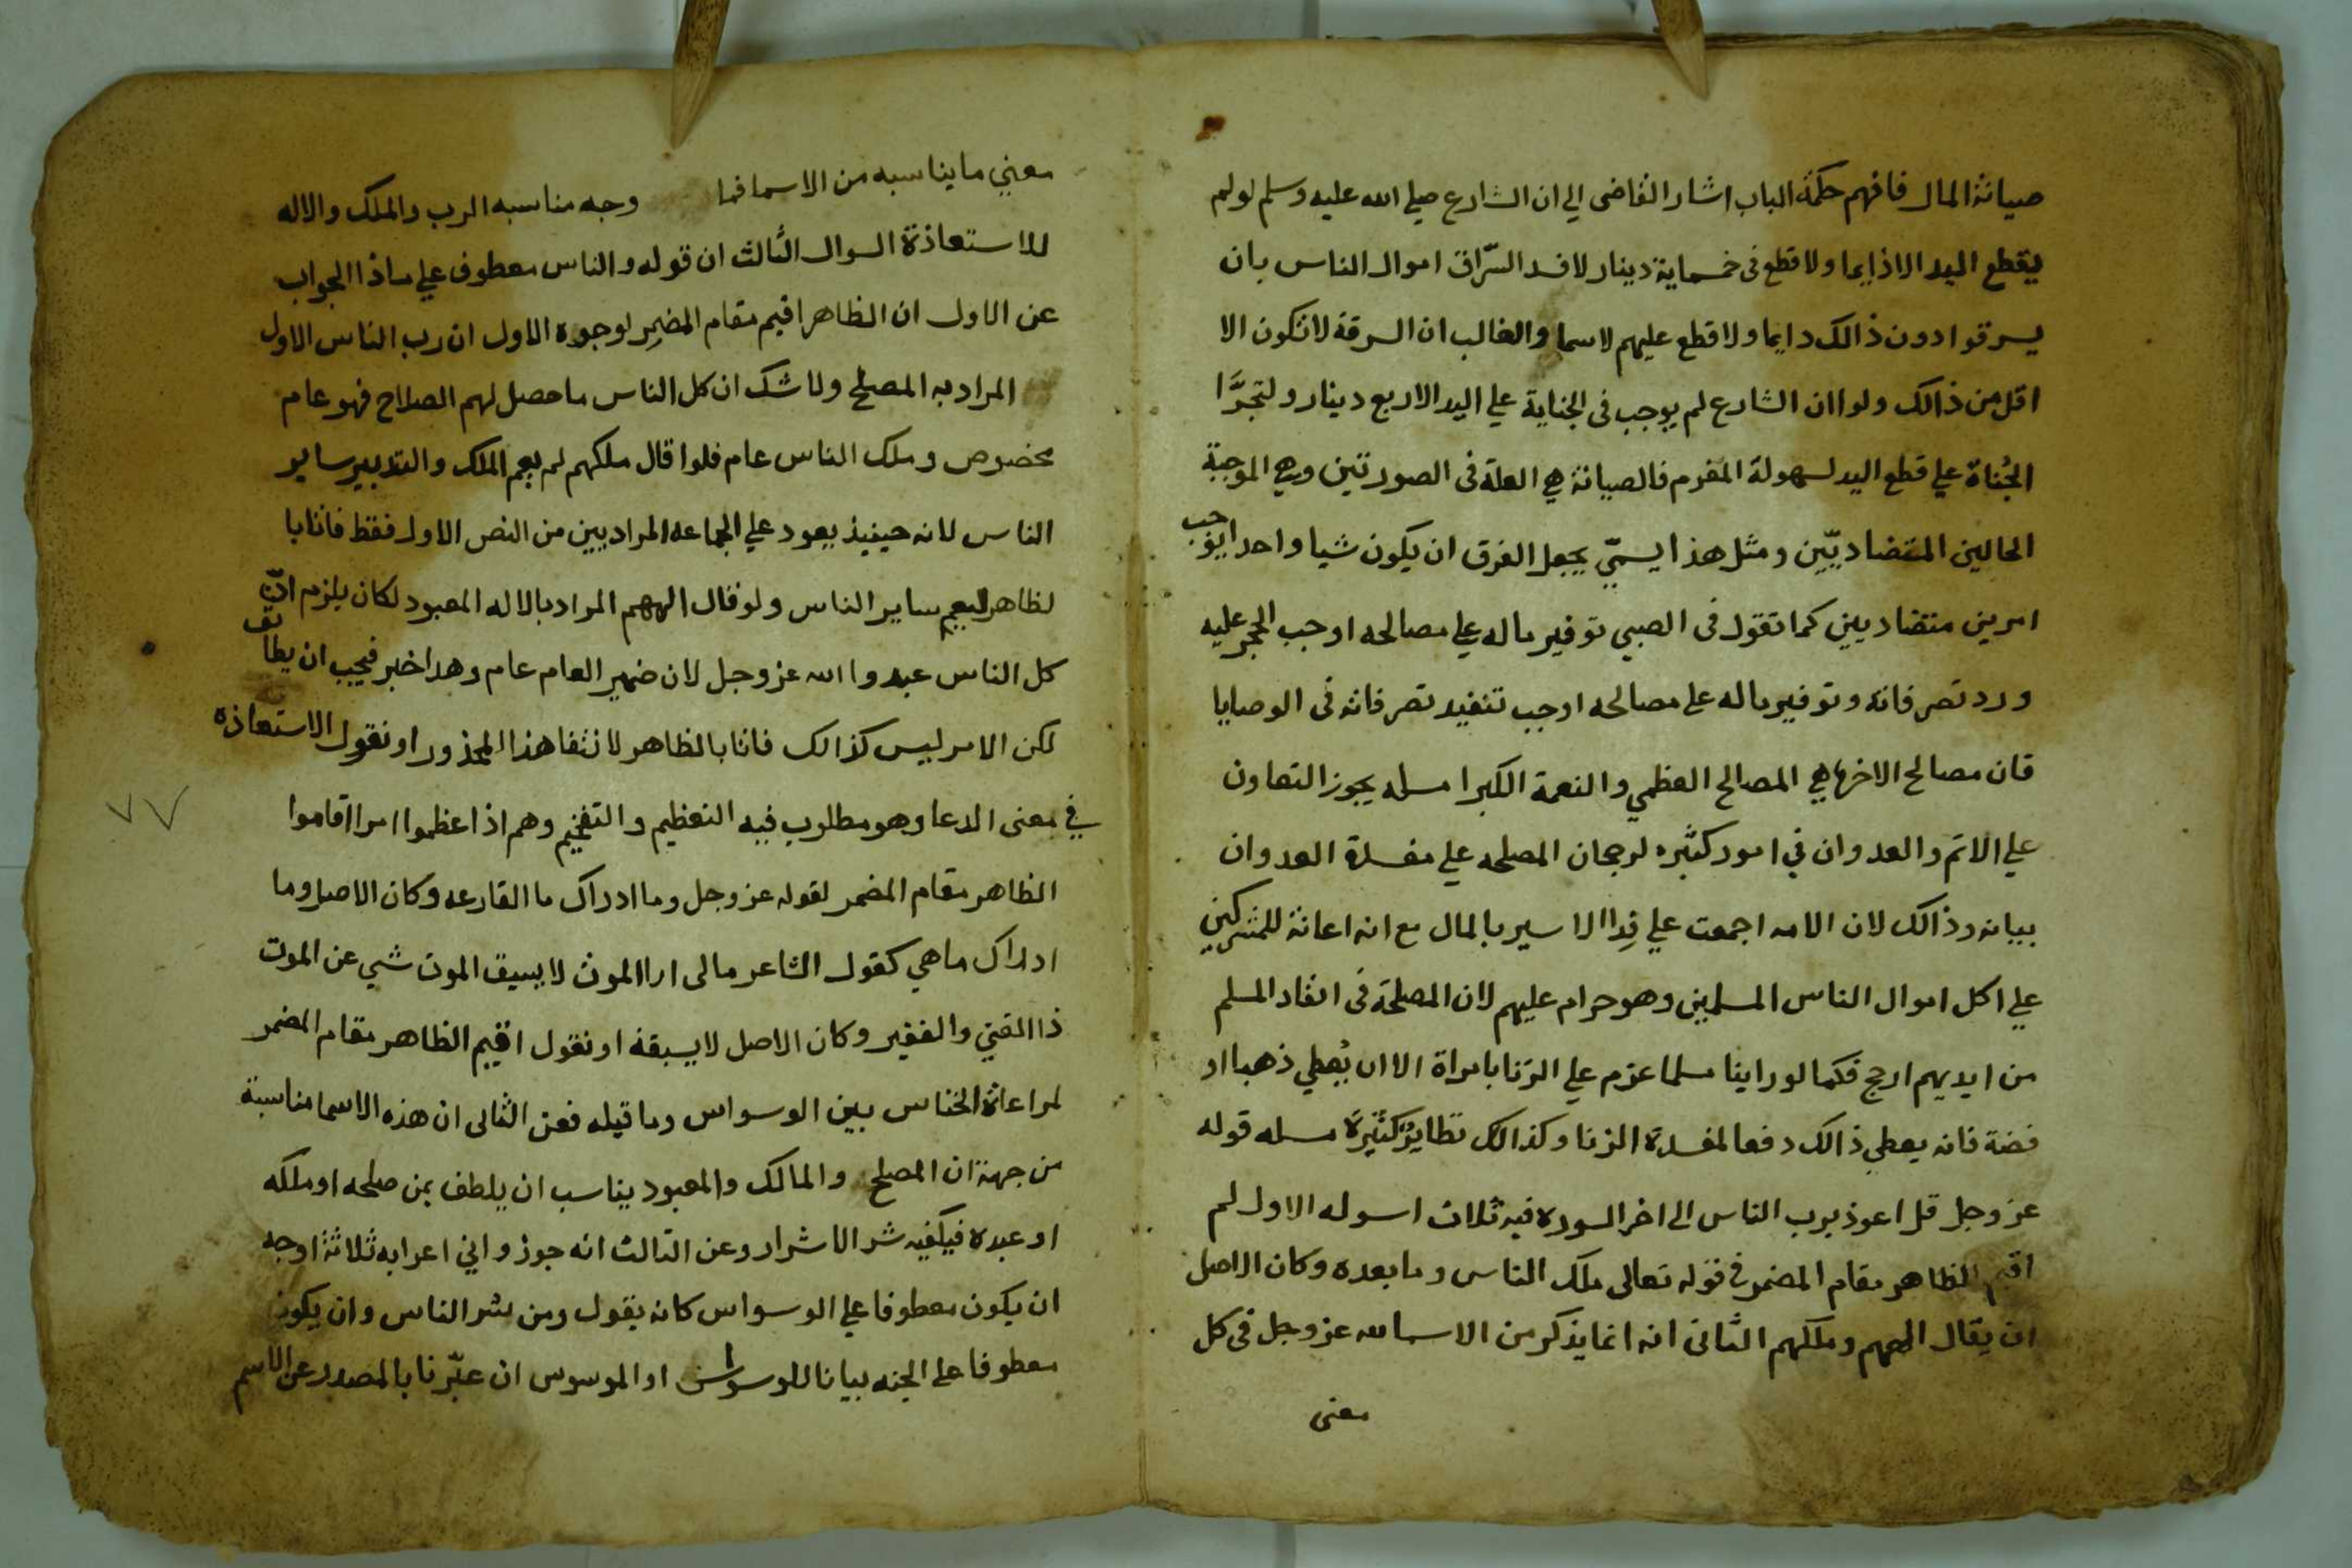 صيانة المال فافهم حكمة الباب اشار القاضى الي ان الشارع صلي الله عليه وسلم لو لم
يقطع اليد الا دايما ولا قطع فى خمسماية دينار لافسد السرّاق اموال الناس بان
يسرقوا دون ذالك دايما ولا قطع عليهم لاسما والغالب ان السرقة لا تكون الا
اقل من ذالك ولو ان الشارع لم يوجب فى الجناية علي اليد الا ربع دينار ولتجرّا
الجُناة علي قطع اليد لسهولة المغرم فالصيانة هي العلة فى الصورتين وهي الموجبة
الحالين المتضاديّين ومثل هذا يسميّ يجعل الفرق ان يكون شيا واحدا يوجب
امرين متضاديين كما تقول فى الصبي توفير ماله علي مصالحه اوجب الحجر عليه
ورد تصرفاته وتوفير ماله على مصالحه اوجب تنفيد تصرفاته فى الوصايا
فان مصالح الاخرا هي المصالح العظمي والنعمة الكبرا مسله يجوز التعاون
علي الاثم والعدوان في امور كثيره لرجحان المصلحه علي مفسدة العدوان
بيانه وذالك لان الامه اجمعت علي فِدا الاسير بالمال مع انه اعانة للمشركين
علي اكل اموال الناس المسلمين وهو حرام عليهم لان المصلحة فى انقاد المسلم
من ايديهم ارجح فكما لو راينا مسلما عزم علي الزنا بامراة الا ان يُعطي ذهبا او
فضة فانه يعطي ذالك دفعا لمفسدة الزنا وكذالك نظايرُ كثيرة مسله قوله
عز وجل قل اعوذ برب الناس الى اخر السورة فيه ثلاث اسوله الاول لم
اقيم الظاهر مقام المضمر فى قوله تعالى ملك الناس وما بعده وكان الاصل
ان يقال الههم وملكهم الثانى انه انما يذكر من الاسما لله عز وجل فى كل
معنى
معني ما يناسبه من الاسما فما وجه مناسبه الرب والملك والاله
للاستعاذة السوال الثالث ان قوله والناس معطوف علي ماذا الجواب
عن الاول ان الظاهر اقيم مقام المضمِر لوجوه الاول ان رب الناس الاول
المراد به المصلح ولا شك ان كل الناس ما حصل لهم الصلاح فهو عام
مخصوص وملك الناس عام فلوا قال ملكهم لم يعم الملك والتدبير ساير
الناس لانه حينيذ يعود علي الجماعه المراديين من النص الاول فقط فاتا با
لظاهر ليعم ساير الناس ولو قال الههم المراد بالاله المعبود لكان يلزم انّ
كل الناس عبدوا الله عز وجل لان ضمير العام عام وهدا خبر فيجب ان يطابق
لكن الامر ليس كذالك فاتا بالظاهر لانتفا هذا المحذور او نقول الاستعاذه
في معنى الدعا وهو مطلوب فيه التعظيم والتفخيم وهم اذا عظموا امرا اقاموا
الظاهر مقام المضمر لقوله عز وجل وما ادراك ما القارعه وكان الاصل وما
ادراك ما هي كقول الشاعر مالى ارا الموت لا يسبق الموت شي عن الموت
ذا الغني والفقير وكان الاصل لا يسبقه او نقول اقيم الظاهر مقام المضمر
لمراعاة الخناس بين الوسواس وما قبله فعن الثانى ان هذه الاسما مناسبة
من جهة ان المصلح والمالك والمعبود يناسب ان يلطف بمن صلحه او ملكه
او عبده فيكفيه شر الاشرار وعن الثالث انه جوز وا في اعرابه ثلاثة اوجه
ان يكون معطوفا علي الوسواس كانه يقول ومن شر الناس وان يكون
معطوفا على الجنه بيانا للوسواس او الموسوس ان عبّرنا بالمصدر عن الاسم
٧٧